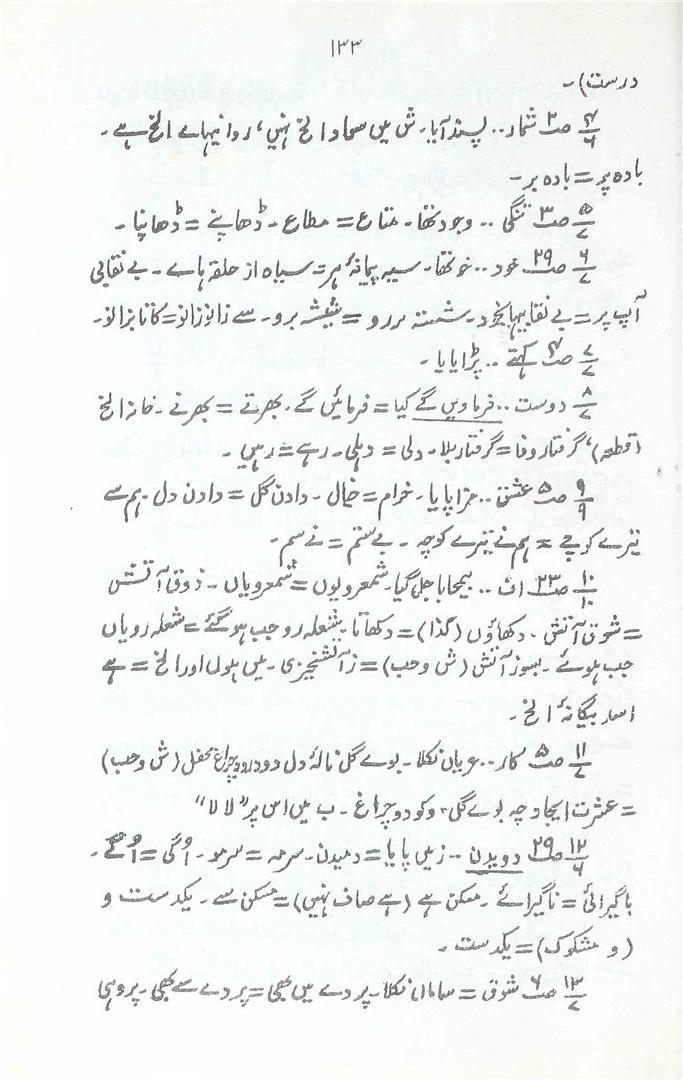 ۱۳۳
درست)۔
۴/۶ صـ۲ شمار.. پسند آیا۔ ش میں سما دالخ نہیں، روانیہاے الخ ہے۔
بادہ پر = بادہ بر۔
۵/۷ صـ۳ تنگی.. وجود تھا۔ متاع = مطاع۔ ڈھانپے = ڈھانپا۔
۶/۷ صـ۲۹ خود.. خو تھا۔ سیہ پیمانۂ ہر = سیاہ از حلقہ ہاے۔ بے نقابی
آپ پر = بے نقابیہا بخود۔ شستہ برو = شیشہ برو۔ سے زانو زانو = کا تا بزانو۔
۷/۷ صـ۴ کہتے.. پڑا پایا۔
۸/۷ دوست.. فرماویں گے کیا = فرمائیں گے۔ بھرتے = بھرنے۔ خانہ الخ
(قطعہ)، گرفتار وفا = گرفتار بلا۔ دلی = دہلی۔ رہے = رہیں۔
۹/۹ صـ۵ عشق.. مزا پایا۔ خرام = خیال۔ دادن گل = دادن دل۔ ہم سے
تیرے کوچے = ہم نے تیرے کوچہ۔ بے ستم = نے ستم۔
۱۰/۱۰ صـ۲۳ ان.. بیمحابا جل گیا۔ شمعرویوں = شمعرویاں۔ ذوق آتش
= شوق آتش۔ دکھاؤں (کذا) = دکھاتا۔ شعلہ رو جب ہو گئے = شعلہ رویاں
جب ہوئے۔ بسوز آتش (ش و حب) = ز آتشخیزی۔ میں ہوں اور الخ = ہے
اسد بیگانۂ الخ۔
۱۱/۷ صـ۵ کار.. عریاں نکلا۔ بوے گل نالۂ دل دود چراغ محفل (ش و حب)
= عشرت ایجاد چہ بوے گل، و کو دود چراغ۔ ب میں اس پر "لا لا"
۱۲/۶ صـ۲۹ دویدن.. زمیں پایا = دمیدن۔ سرمہ = سرمو۔ اُگی = اُگے۔
باگیرائی = ناگیرائے۔ ممکن ہے (ہے صاف نہیں) = مسکن سے۔ یکدست و
(و مشکوک) = یکدست۔
۱۳/۷ صـ۶ شوق = ساماں نکلا۔ پردے میں بھی = پردے سے بھی۔ پر وہی